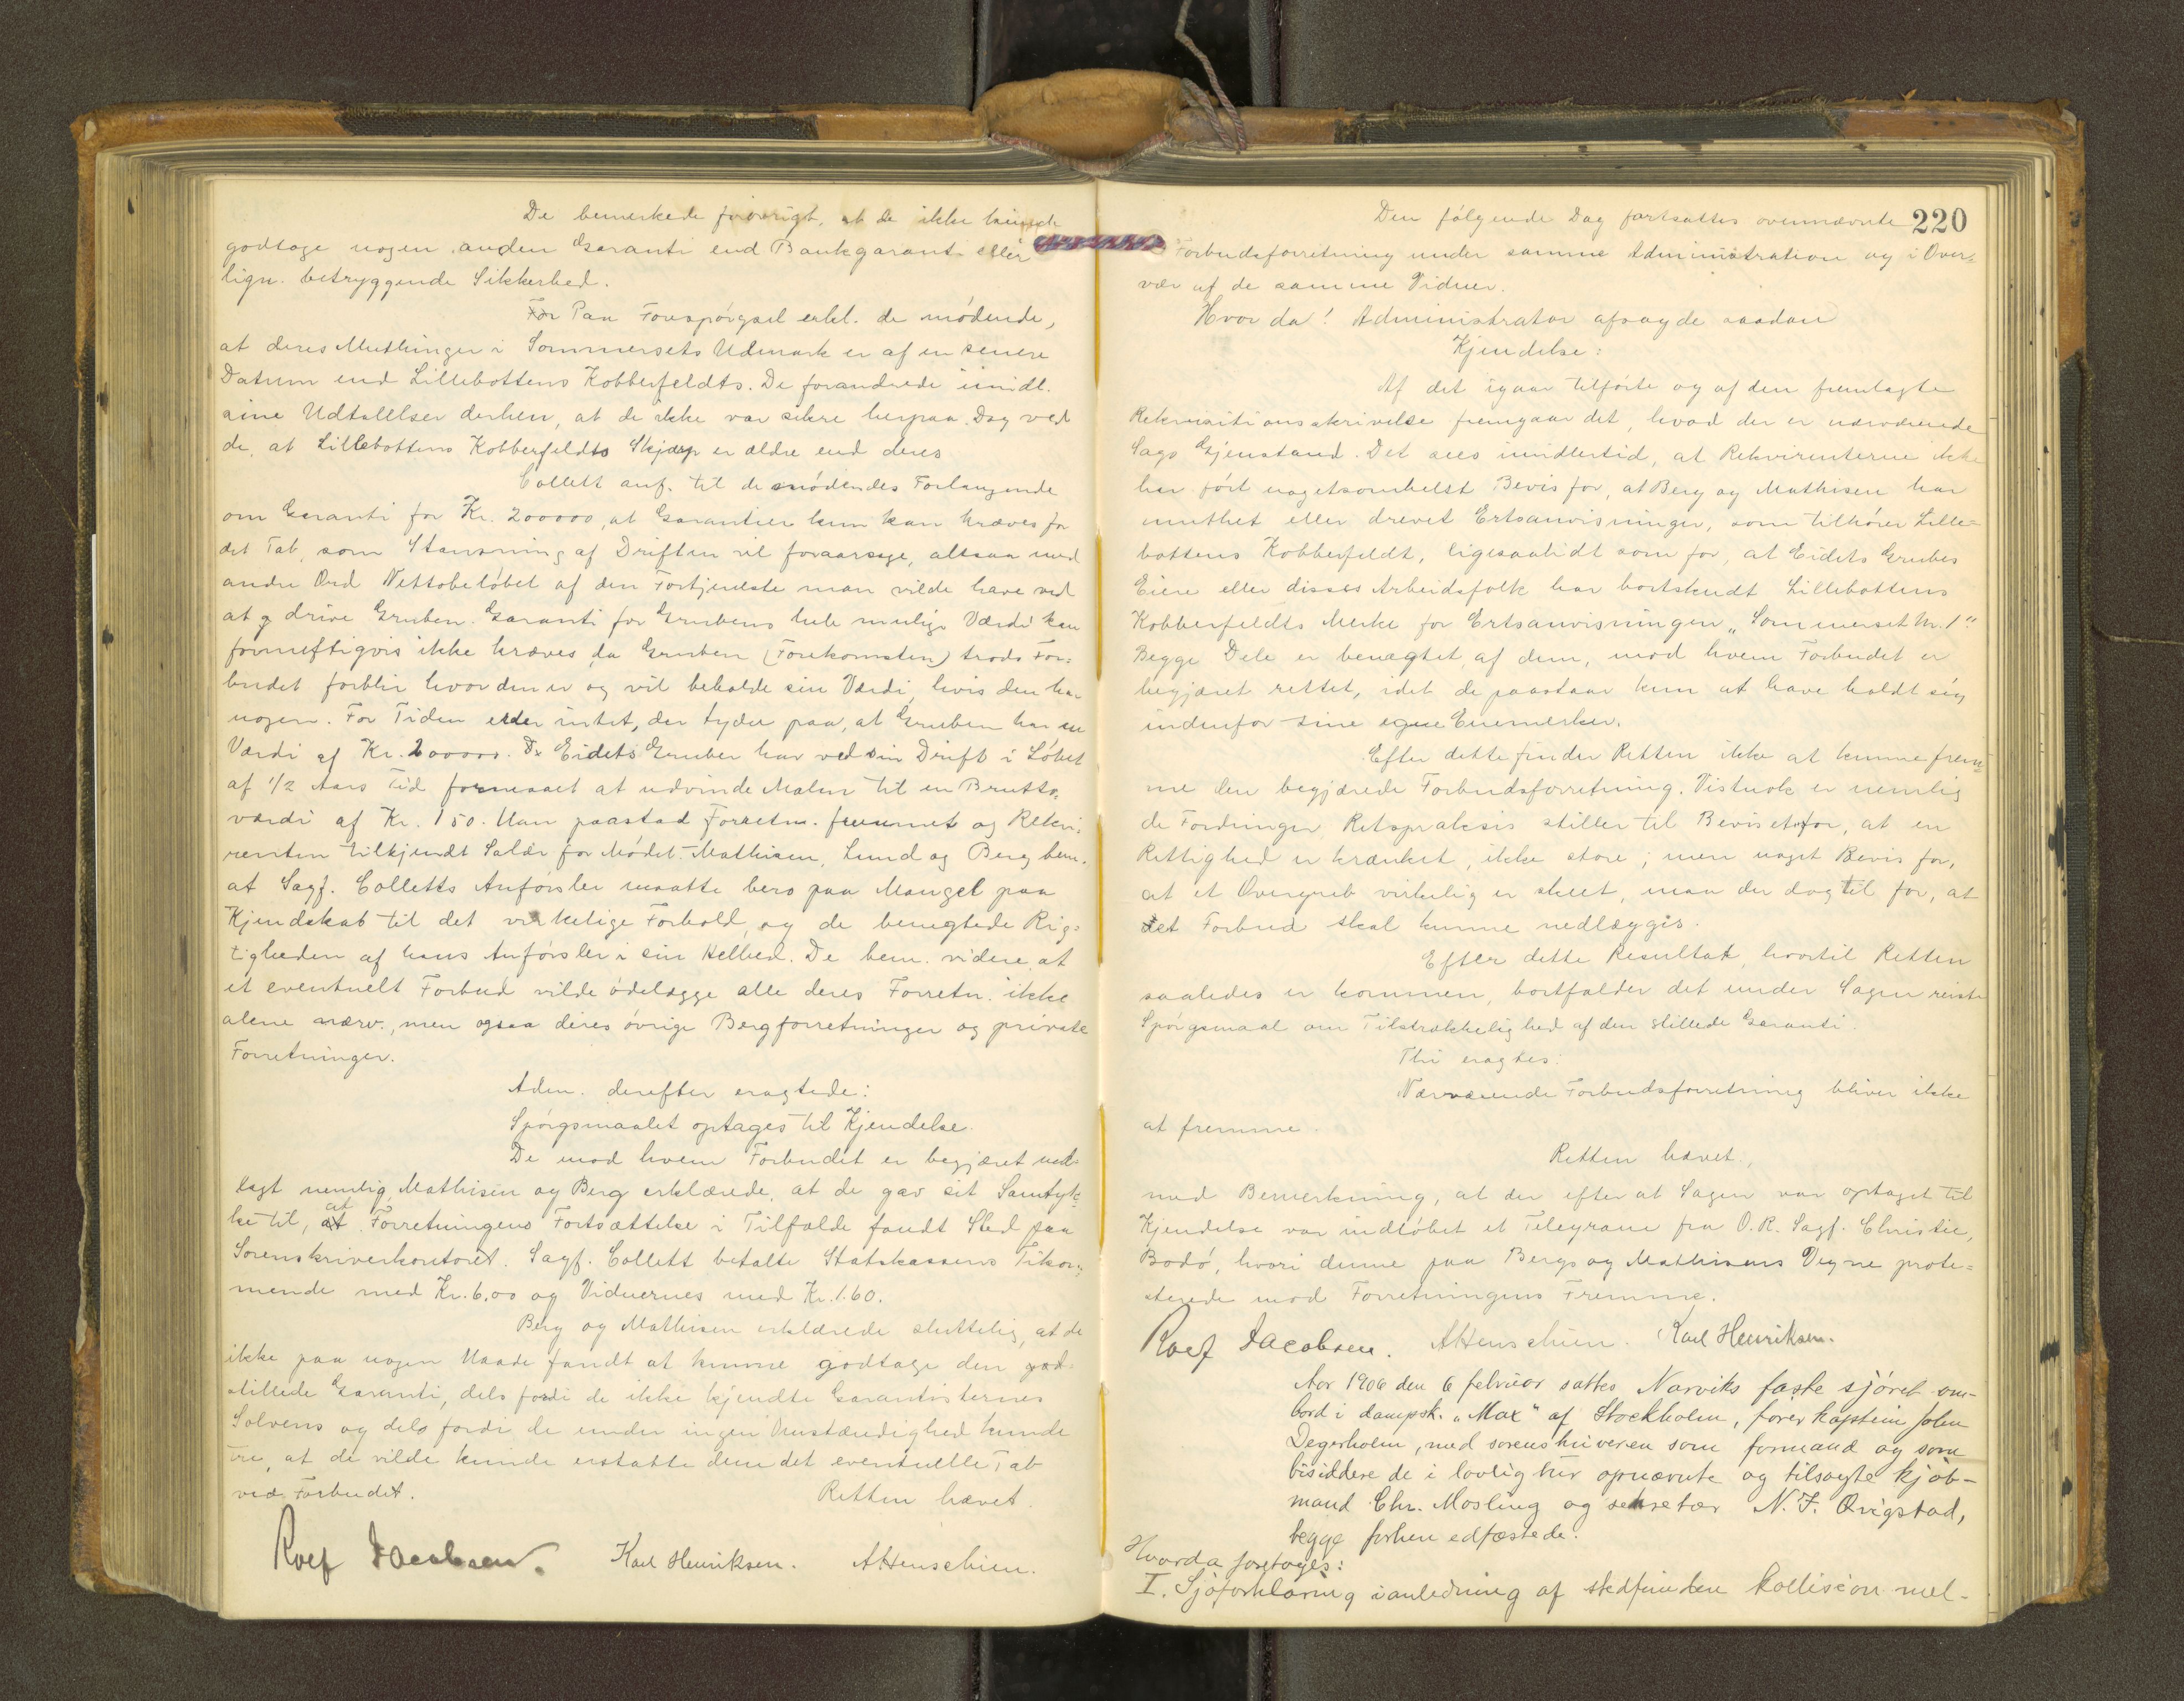 De bemerkede forøvrigt, at de ikke kunde
godtage nogen anden Garanti end Bankgaranti eller
lign. betryggende Sikkerhed.
Paa Forespørgsel erkl. de mødende,
at deres Muthinger i Sommersets Udmark er af en senere
Datum end Lillebottens Kobberfeldts. De forandrede imidl.
sine Udtalelser derhen, at de ikke var sikre herpaa. Dog ved
de, at Lillebottens Kobberfeldts Skjærp er ældre end deres
Collett anf. til de mødendes Forlangende
om Garanti for Kr. 200000, at Garantien kun kan kræves for
det Tab, som Stansning af Driften vil foraarsage, altsaa med
andre Ord Nettobeløbet af den Fortjeneste man vilde have ved
at drive Gruben. Garanti for Grubens hele mulige Værdi kan
fornuftigvis ikke kræves, da Gruben (Forekomsten) trods For=
budet forblir hvor den er og vil beholde sin Værdi, hvis den har
nogen. For Tiden er der intet, der tyder paa, at Gruben har en
Værdi af Kr. 200000. Eidets Gruber har ved sin Drift i Løbet
af 1/2 Aars Tid formaaet at udvinde Malm til en Brutto=
værdi af Kr. 150. Man paastod Forretn. fremmet og Rekvi=
renten tilkjendt Salær for Mødet. Mathisen, Lund og Berg bem.
at Sagf. Colletts Anførsler maatte bero paa Mangel paa
Kjendskab til det virkelige Forhold, og de benegtede Rig=
tigheden af hans Anførsler i sin Helhed. De bem. videre, at
et eventuelt Forbud vilde ødelægge alle deres Forretn. ikke
alene nærv., men ogsaa deres øvrige Bergforretninger og private
Forretninger.
Adm. derefter eragtede:
Spørgsmaalet optages til Kjendelse.
De mod hvem Forbudet er begjæret ned=
lagt nemlig Mathisen og Berg erklærede, at de gav sit Samtyk=
ke til, at Forretningens Fortsættelse i Tilfælde fandt Sted paa
Sorenskriverkontoret. Sagf. Collett betalte Statskassens Tilkom=
mende med Kr. 6,00 og Vidnernes med Kr. 1.60.
Berg og Mathisen erklærede sluttelig, at de
ikke paa nogen Maade fandt at kunne godtage den
stillede Garanti, dels fordi de ikke kjendte Garantisternes
Solvens og dels fordi de under ingen Omstændighed kunde
tro, at de vilde kunde erstatte dem det eventuelle Tab
ved Forbudet. Retten hævet.
Rolf Jacobsen. Karl Henriksen. A Henschien.
220
Den følgende Dag fortsattes ovennævnte
Forbudsforretning under samme Administration og i Over=
vær af de samme Vidner.
Hvor da! Administrator afsagde saadan
Kjendelse:
Af det igaar tilførte og af den fremlagte
Rekvisitionsskrivelse fremgaar det, hvad der er nærværende
Sags Gjenstand. Det sees imidlertid, at Rekvirenterne ikke
har ført nogetsomhelst Bevis for, at Berg og Mathisen har
muthet eller drevet Ertsanvisninger, som tilhører Lille=
bottens Kobberfeldt, ligesaalidt som for, at Eidets Grubes
Eiere eller disses Arbeidsfolk har bortskudt Lillebottens
Kobberfeldts Merke for Ertsanvisningen „Sommerset Nr. 1“.
Begge Dele er benægtet af dem, mod hvem Forbudet er
begjæret rettet, idet de paastaar kun at have holdt sig
indenfor sine egne Enemerker.
Efter dette finder Retten ikke at kunne frem=
me den begjærede Forbudsforretning. Vistnok er nemlig
de Fordringer, Retspraksis stiller til Beviset for, at en
Rettighed er krænket, ikke store; men noget Bevis for,
at et Overgreb virkelig er skeet, maa der dog til for, at
et Forbud skal kunne nedlægges.
Efter dette Resultat, hvortil Retten
saaledes er kommen, bortfalder det under Sagen reiste
Spørgsmaal om Tilstrækkelighed af den stillede Garanti.
Thi eragtes:
Nærværende Forbudsforretning bliver ikke
at fremme.
Retten hævet.,
med Bemerkning, at der efter at Sagen var optaget til
Kjendelse var indløbet et Telegram fra O.R. Sagf. Christie,
Bodø, hvori denne paa Bergs og Mathisens Vegne prote=
sterede mod Forretningens Fremme.
Rolf Jacobsen. A Henschien. Karl Henriksen.
Aar 1906 den 6 februar sattes Narviks faste sjøret om-
bord i dampsk. „Max“ af Stockholm, fører kaptein John
Degerholm, med sorenskriveren som formand og som
bisiddere de i lovlig tur opnævnte og tilsagte kjøb-
mand Chr. Mosling og sekretær N. F. Qvigstad,
begge forhen edfæstede.
Hvorda foretoges:
I. Sjøforklaring i anledning af stedfunden kollision mel-